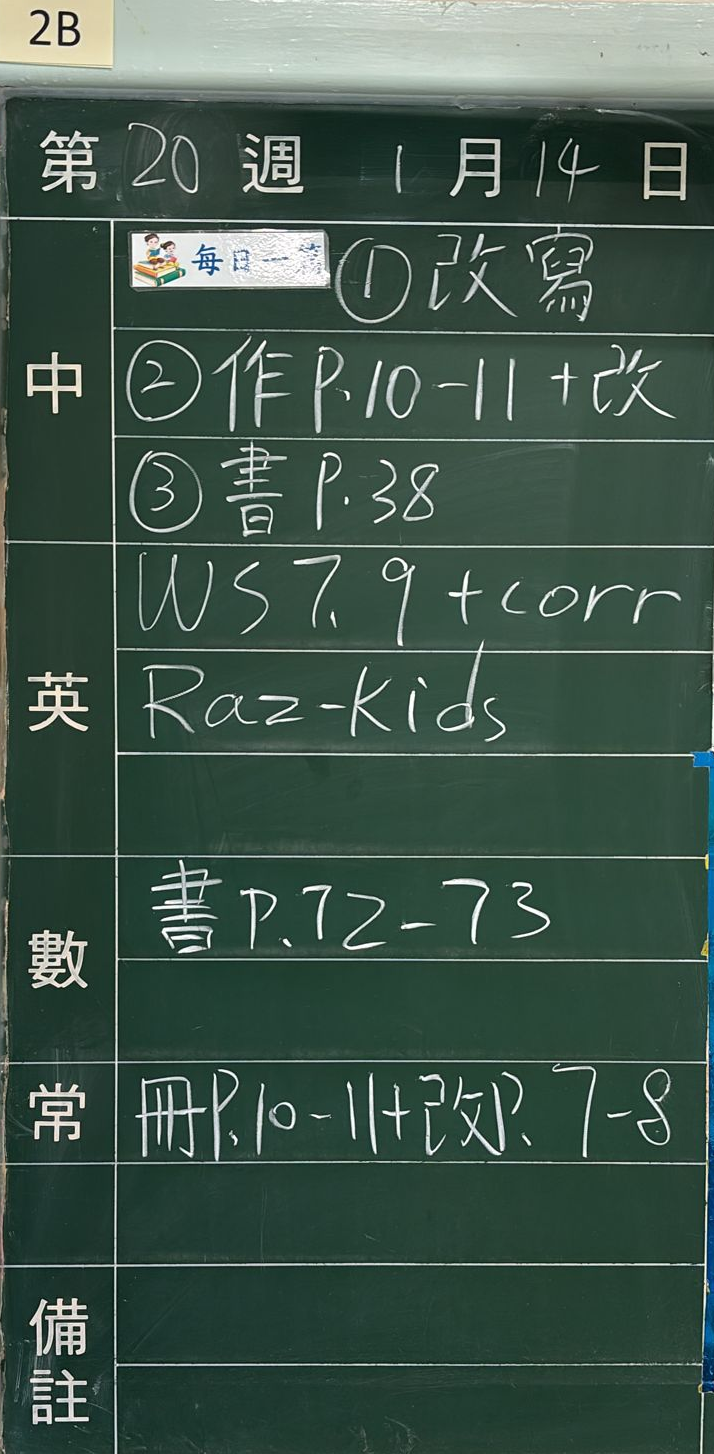 2B
第 20 週 1 月 14 日
每日一篇 ① 改寫
中 ② 作 P.10-11 +改
③ 書 P.38
WS 7, 9 +corr
英 Raz-Kids
數 書 P.72-73
常 冊P.10-11+改P. 7-8
備註